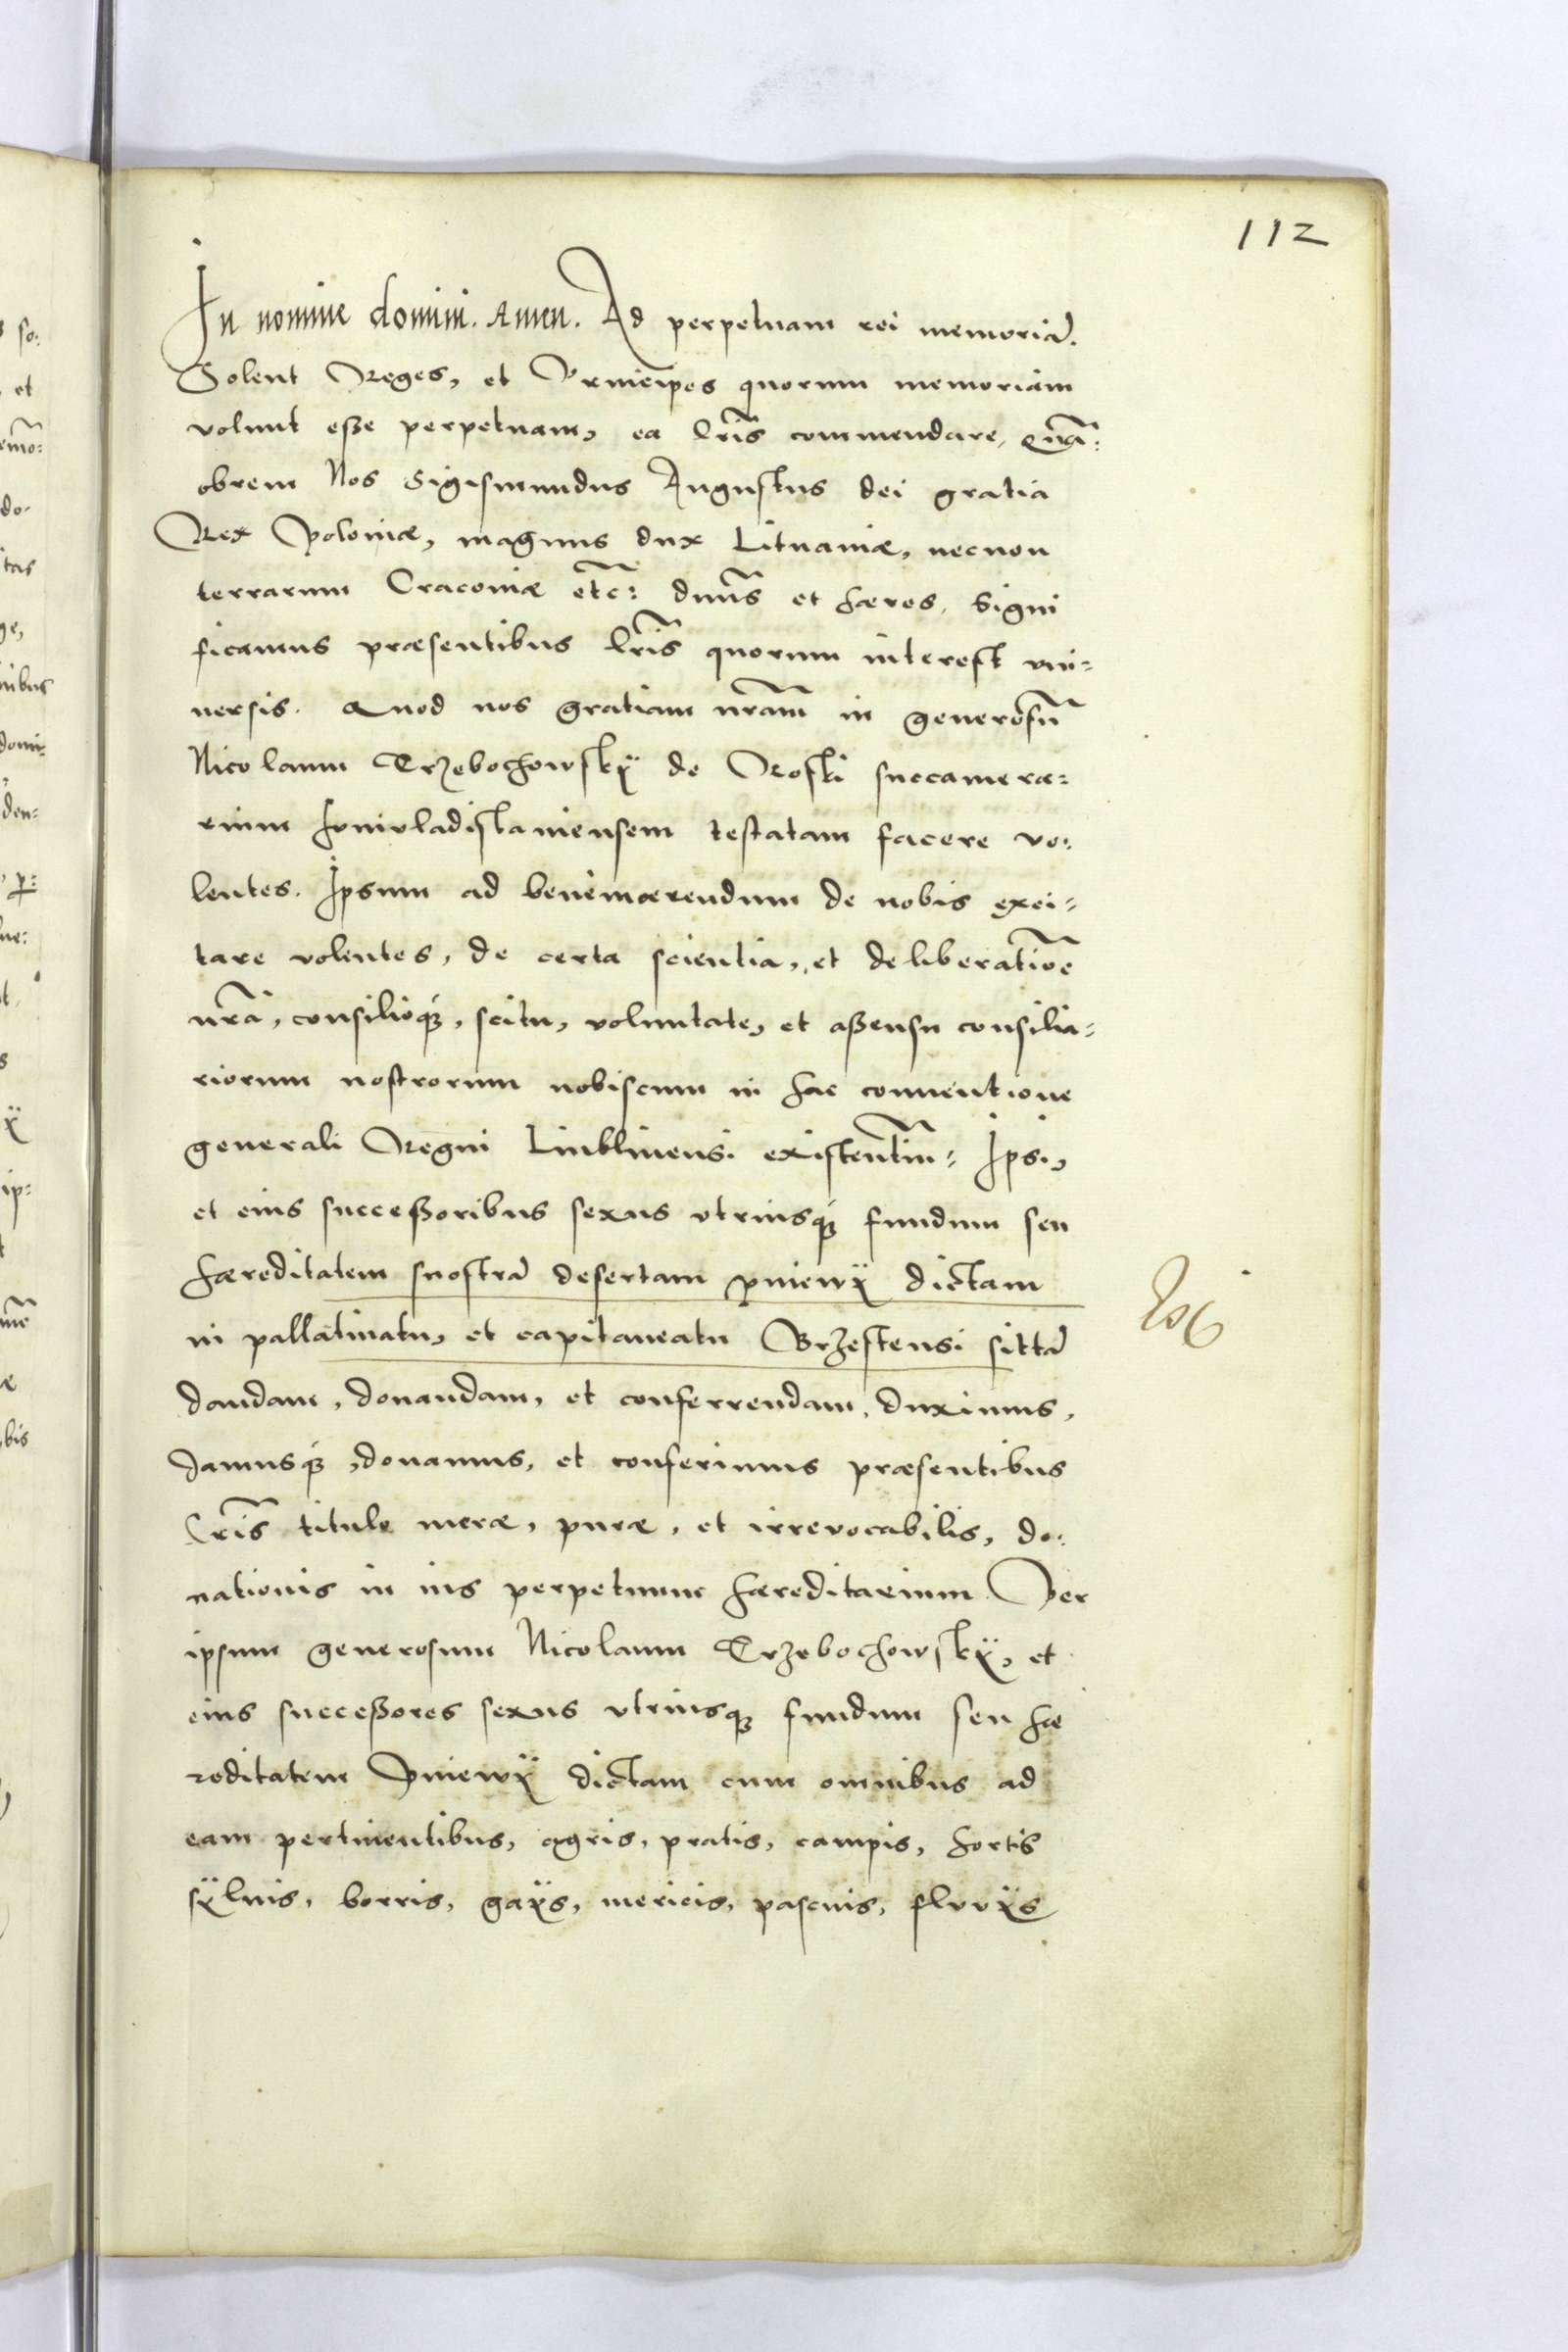 112
In nomine domini. Amen. Ad perpetuam rei memoriã.
Solent Reges, et Principes quorum memoriam
volunt eße perpetuam, ea lr̃is commendare, Quã:
obrem Nos Sigismundus Augustus dei gratia
Rex Poloniæ, magnus dux Lituaniæ, necnon
terrarum Cracoviæ etc̃: dnũs et hæres. Signi
ficamus præsentibus lr̃is quorum interest vni-
uersis. Quod nos gratiam nr̃am in generosũ
Nicolaum Trzebochowskÿ de Roski succamera-
rium Juniuladislauiensem testatam facere vo:
lentes. Ipsum ad benemærendum de nobis exci-
tare volentes, de certa scientia, et deliberatiõe
nr̃a, consilioq́;, scitu, voluntate, et aßensu consilia-
riorum nostrorum nobiscum in hac conuentione
generali Regni Liublinensi existentiũ: Ipsi,
et eius succeßoribus sexus vtriusq́; fundum seu
hæreditatem snostrã desertam pniewÿ dictam
in pallatinatu, et capitaneatu Brzestensi sittã
dandam, donandam, et conferrendam, duximus,
damusq́;, donamus, et conferimus præsentibus
lr̃is titulo meræ, puræ, et irrevocabilis, do:
nationis in ius perpetuum hæreditarium Per
ipsum generosum Nicolaum Trzebochowskÿ, et
eius succeßores sexus vtriusq; fundum seu hæ
reditatem Pniewÿ dictam cum omnibus ad
eam pertinentibus, agris, pratis, campis, hortis
sÿluis, borris, gaÿs, mericis, pascuis, fluvÿs